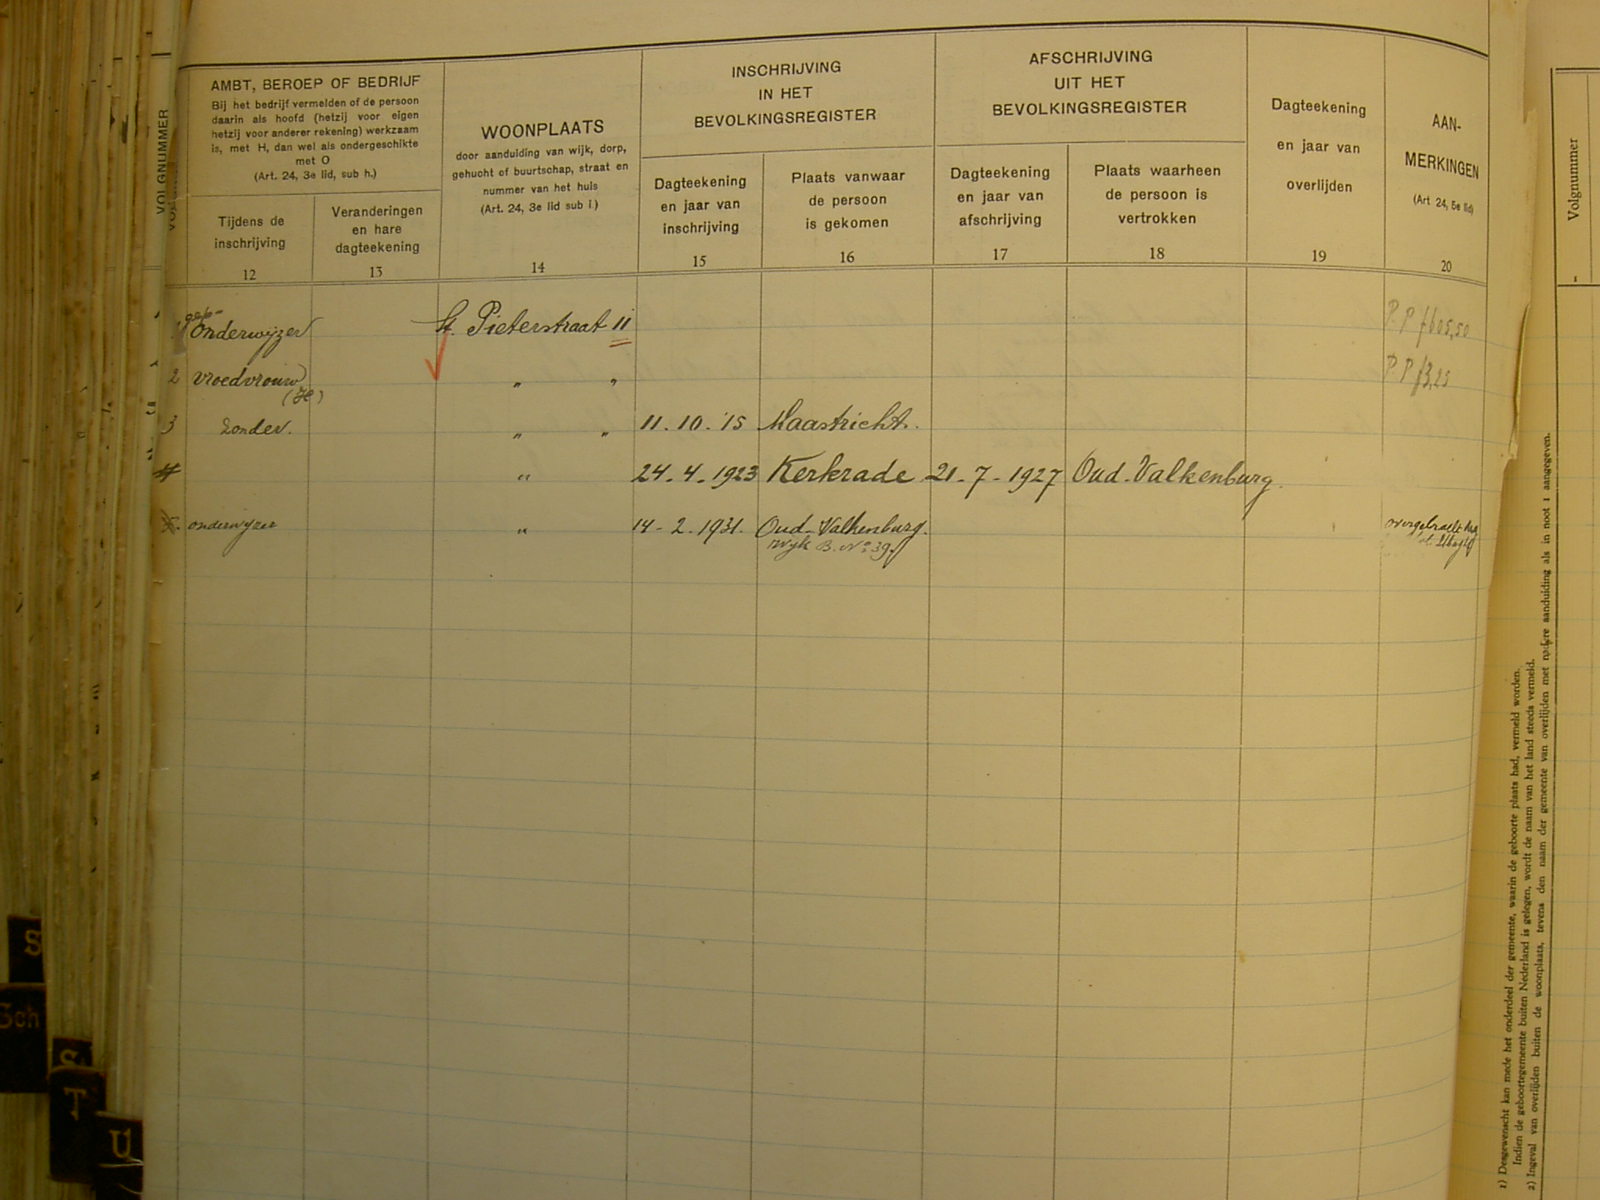 VOLGNUMMER
AMBT, BEROEP OF BEDRIJF
Bij het bedrijf vermelden of de persoon
daarin als hoofd (hetzij voor eigen
hetzij voor anderer rekening) werkzaam
is, met H, dan wel als ondergeschikte
met O
(Art. 24, 3e lid, sub h.)
Tijdens de
inschrijving
12
Veranderingen
en hare
dagteekening
13
WOONPLAATS
door aanduiding van wijk, dorp,
gehucht of buurtschap, straat en
nummer van het huis
(Art. 24, 3e lid sub i.)
14
INSCHRIJVING
IN HET
BEVOLKINGSREGISTER
Dagteekening
en jaar van
inschrijving
15
Plaats vanwaar
de persoon
is gekomen
16
AFSCHRIJVING
UIT HET
BEVOLKINGSREGISTER
Dagteekening
en jaar van
afschrijving
17
Plaats waarheen
de persoon is
vertrokken
18
Dagteekening
en jaar van
overlijden
19
AAN-
MERKINGEN
(Art 24, 5e lid)
20
gep-
1 Onderwijzer St. Pieterstraat 11 P.P f605,50
2 Vroedvrouw „ „ P P f3,25
(H)
3 Zonder. „ „ 11.10.'15 Maastricht.
4 „ 24-4-1923 Kerkrade 21-7-1927 Oud-Valkenburg.
5. onderwijzer „ 14-2-1931. Oud-Valkenburg.
Wijk B. No. 39.
S
Sch
S
T
U
Volgnummer
1) Desgewenscht kan mede het onderdeel der gemeente, waarin de geboorte plaats had, vermeld worden.
Indien de geboortegemeente buiten Nederland is gelegen, wordt de naam van het land steeds vermeld.
2) Ingeval van overlijden buiten de woonplaats, tevens den naam der gemeente van overlijden met nadere aanduiding als in noot 1 aangegeven.